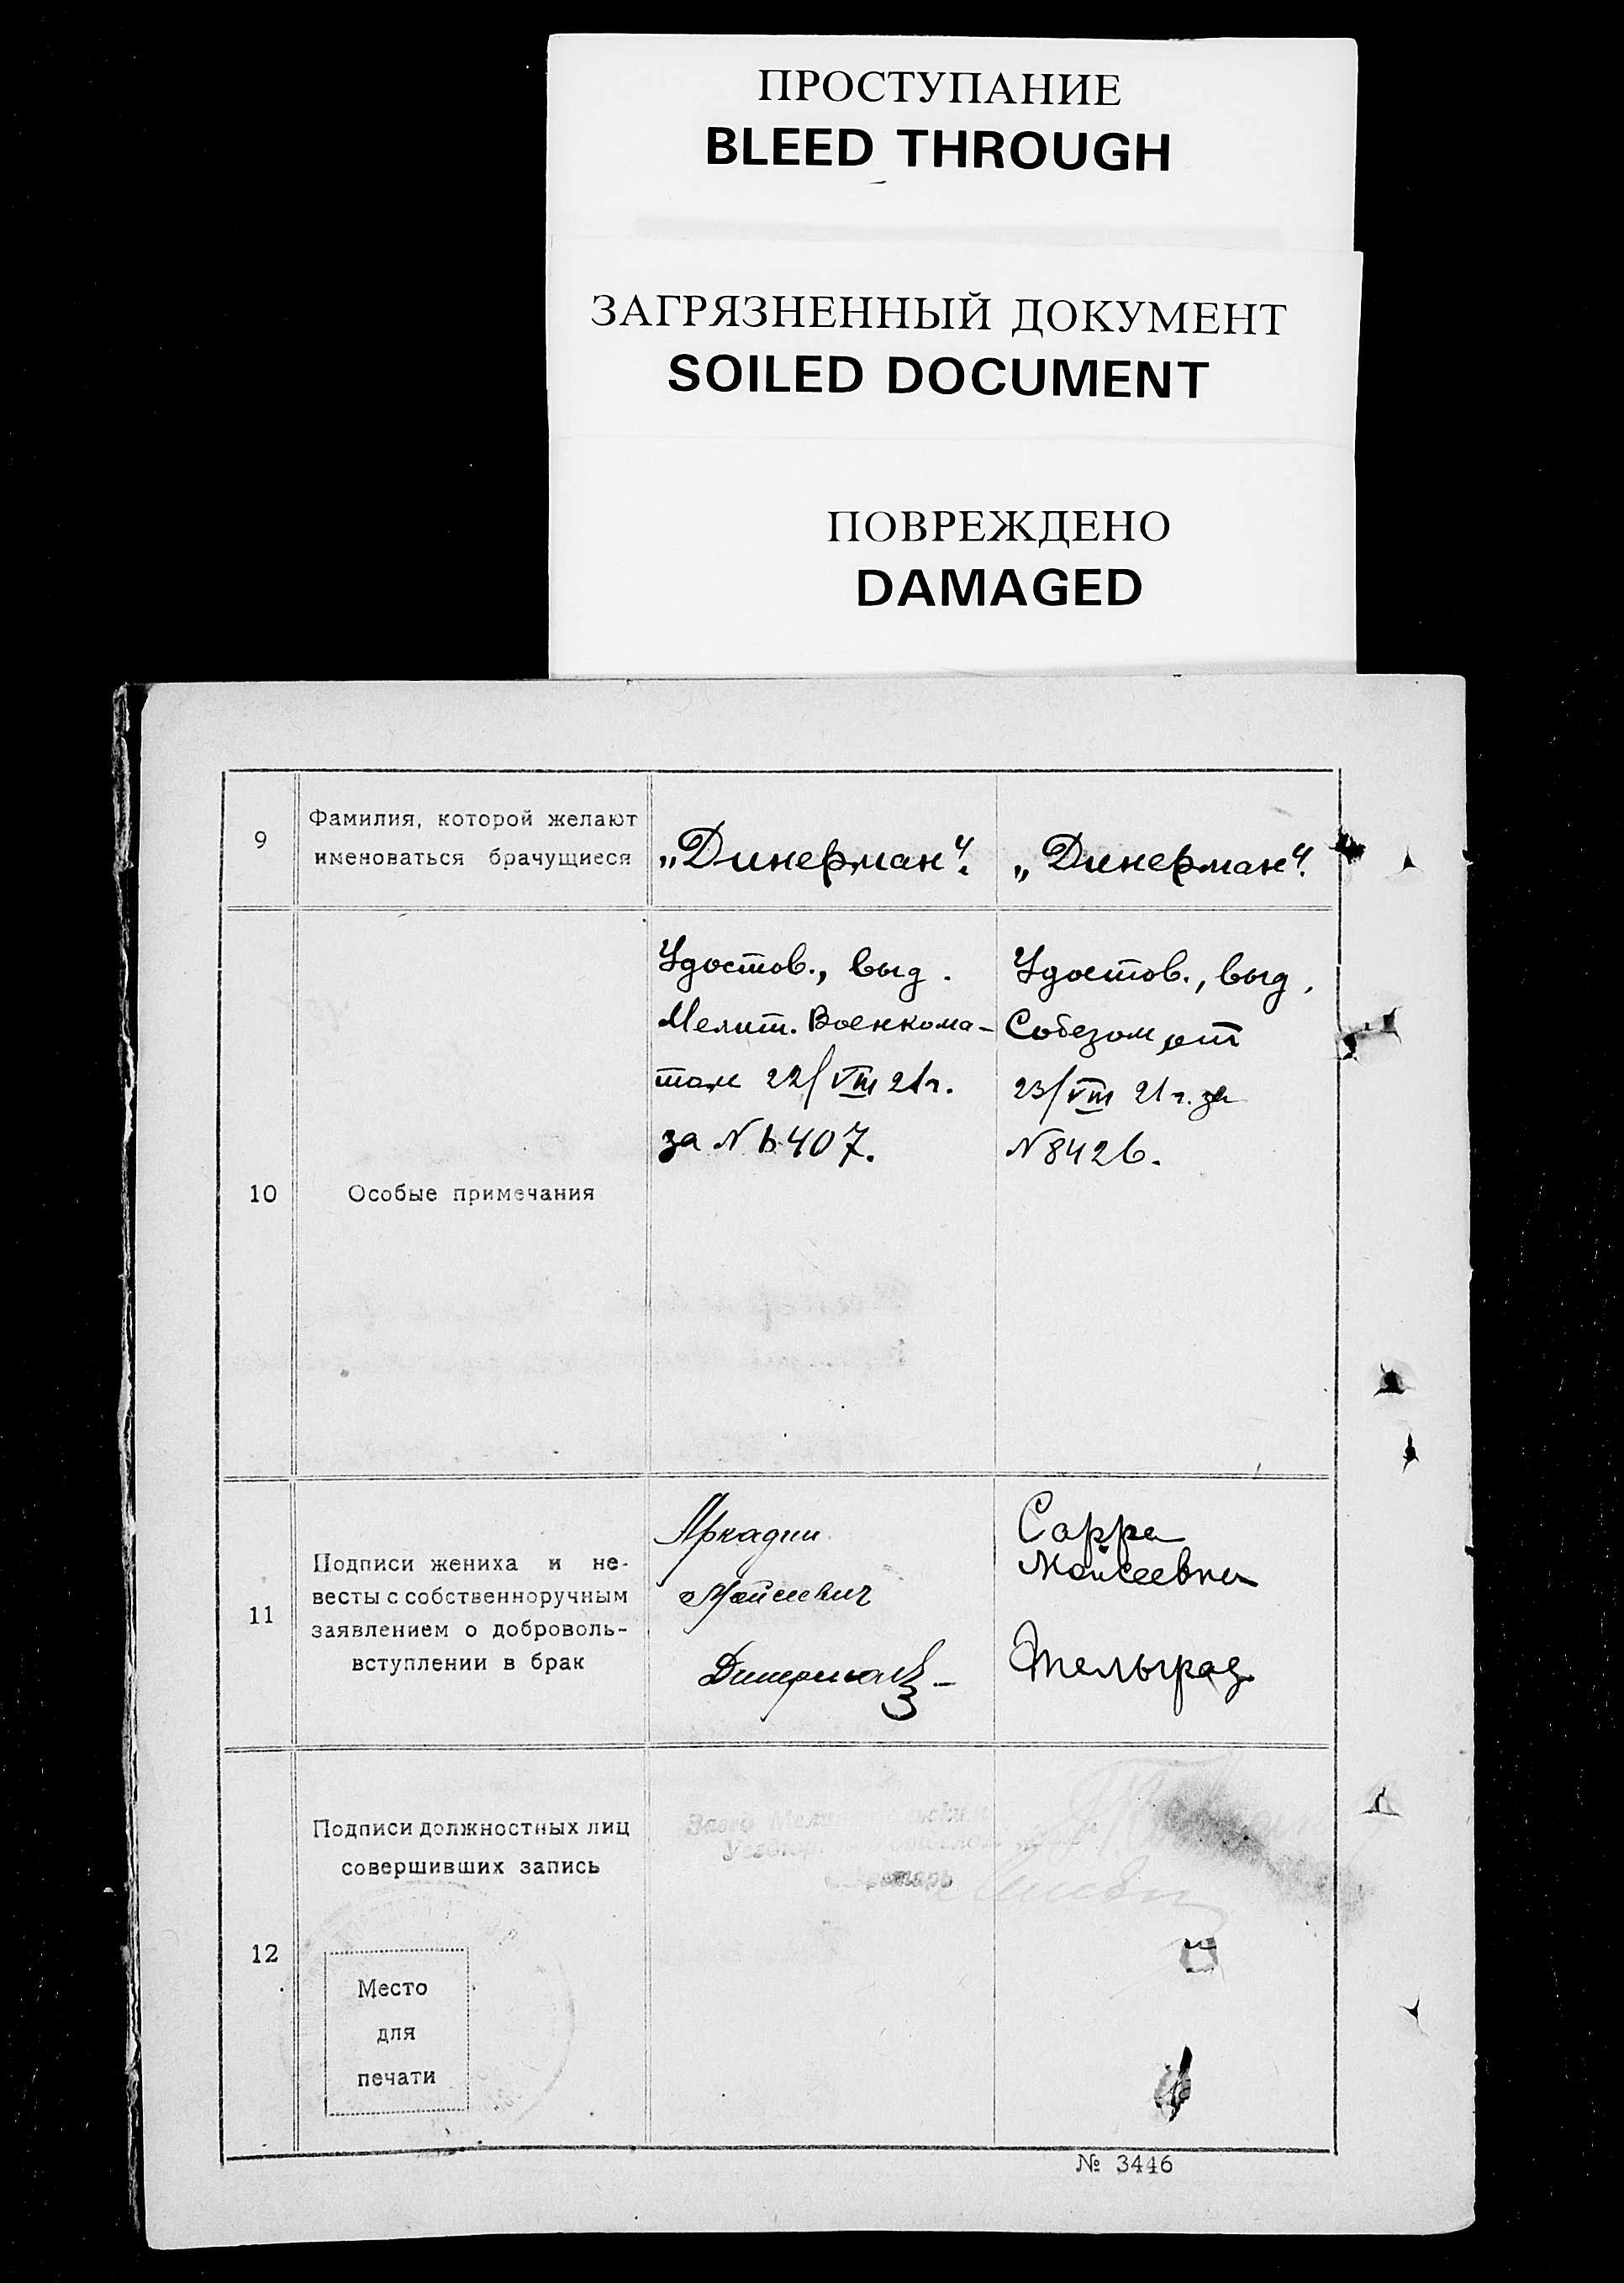 ПРОСТУПАНИЕ
BLEED THROUGH
ЗАГРЯЗНЕННЫЙ ДОКУМЕНТ
SOILED DOCUMENT
ПОВРЕЖДЕНО
DAMAGED
9
Фамилия, которой желают
именоваться брачущиеся
„Динерман“.
„Динерман“.
10
Особые примечания
Удостов., выд.
Мелит. Военкома-
том 22/VIII 21 г.
за № 6407.
Удостов., выд,
Собезом от
23/VIII 21 г. за
№ 8426.
11
Подписи жениха и не-
весты с собственноручным
заявлением о доброволь-
вступлении в брак
Аркадии
Мойсеевич
Динерман
Сарра
Мойсеевна
Тельград
12
Подписи должностных лиц
совершивших запись
Место
для
печати
№ 3446